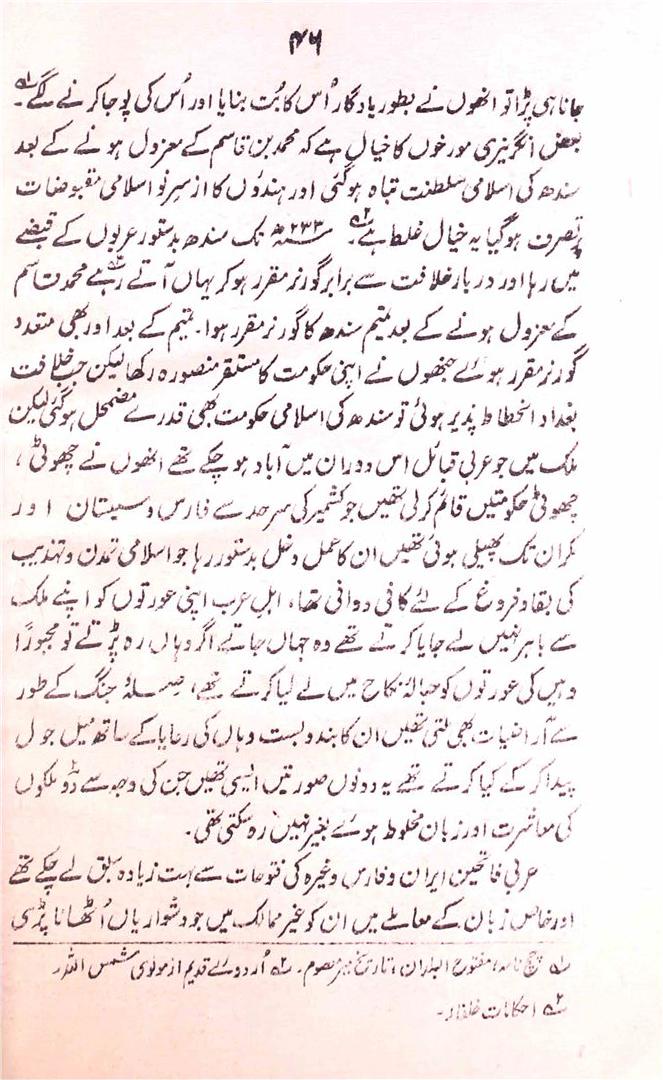 ۴۶
جانا ہی پڑا تو انھوں نے بطور یادگار اُس کا بُت بنایا اور اُس کی پوجا کرنے لگے۔ ؎۱
بعض انگریزی مورخوں کا خیال ہے کہ محمد بن قاسم کے معزول ہونے کے بعد
سندھ کی اسلامی سلطنت تباہ ہوگئی اور ہندؤں کا از سرِ نو اسلامی مقبوضات
پر تصرف ہوگیا یہ خیال غلط ہے۔ ؎۲ ۲۳۳ھ تک سندھ بدستور عربوں کے قبضے
میں رہا اور دربارِ خلافت سے برابر گورنر مقرر ہوکر یہاں آتے رہے ؎۳ محمد قاسم
کے معزول ہونے کے بعد تمیم سندھ کا گورنر مقرر ہوا۔ تمیم کے بعد اور بھی متعدد
گورنر مقرر ہوئے جنھوں نے اپنی حکومت کا مستقر منصورہ رکھا لیکن جب خلافت
بغداد انحطاط پذیر ہوئی تو سندھ کی اسلامی حکومت بھی قدرے مضمحل ہوگئی لیکن
ملک میں جو عربی قبائل اس دوران میں آباد ہوچکے تھے انھوں نے چھوٹی،
چھوٹی حکومتیں قائم کرلی تھیں جو کشمیر کی سرحد سے فارس و سیستان اور
مکران تک پھیلی ہوئی تھیں ان کا عمل دخل بدستور رہا جو اسلامی تمدن و تہذیب
کی بقاد فروغ کے لئے کافی دوافی تھا، اہلِ عرب اپنی عورتوں کو اپنے ملک
سے باہر نہیں لے جایا کرتے تھے وہ جہاں جاتے اگر وہاں رہ پڑتے تو مجبوراً
وہیں کی عورتوں کو حبالۂ نکاح میں لے لیا کرتے تھے، صلۂ جنگ کے طور
سے آراضیات بھی ملتی تھیں ان کا بندوبست وہاں کی رعایا کے ساتھ میل جول
پیدا کرکے کیا کرتے تھے یہ دونوں صورتیں ایسی تھیں جن کی وجہ سے دو ملکوں
کی معاشرت اور زبان مخلوط ہوئے بغیر نہیں رہ سکتی تھی۔
عربی فاتحین ایران و فارس وغیرہ کی فتوحات سے بہت زیادہ سبق لے چکے تھے
اور خاص زبان کے معاملے میں ان کو غیر ممالک میں جو دشواریاں اُٹھانا پڑی
؎۱ چچ نامہ، مفتوح البلدان، تاریخ میر معصوم۔ ؎۲ اُردوئے قدیم از مولوی شمس اللہ
؎۳ احکامات خلفاء۔